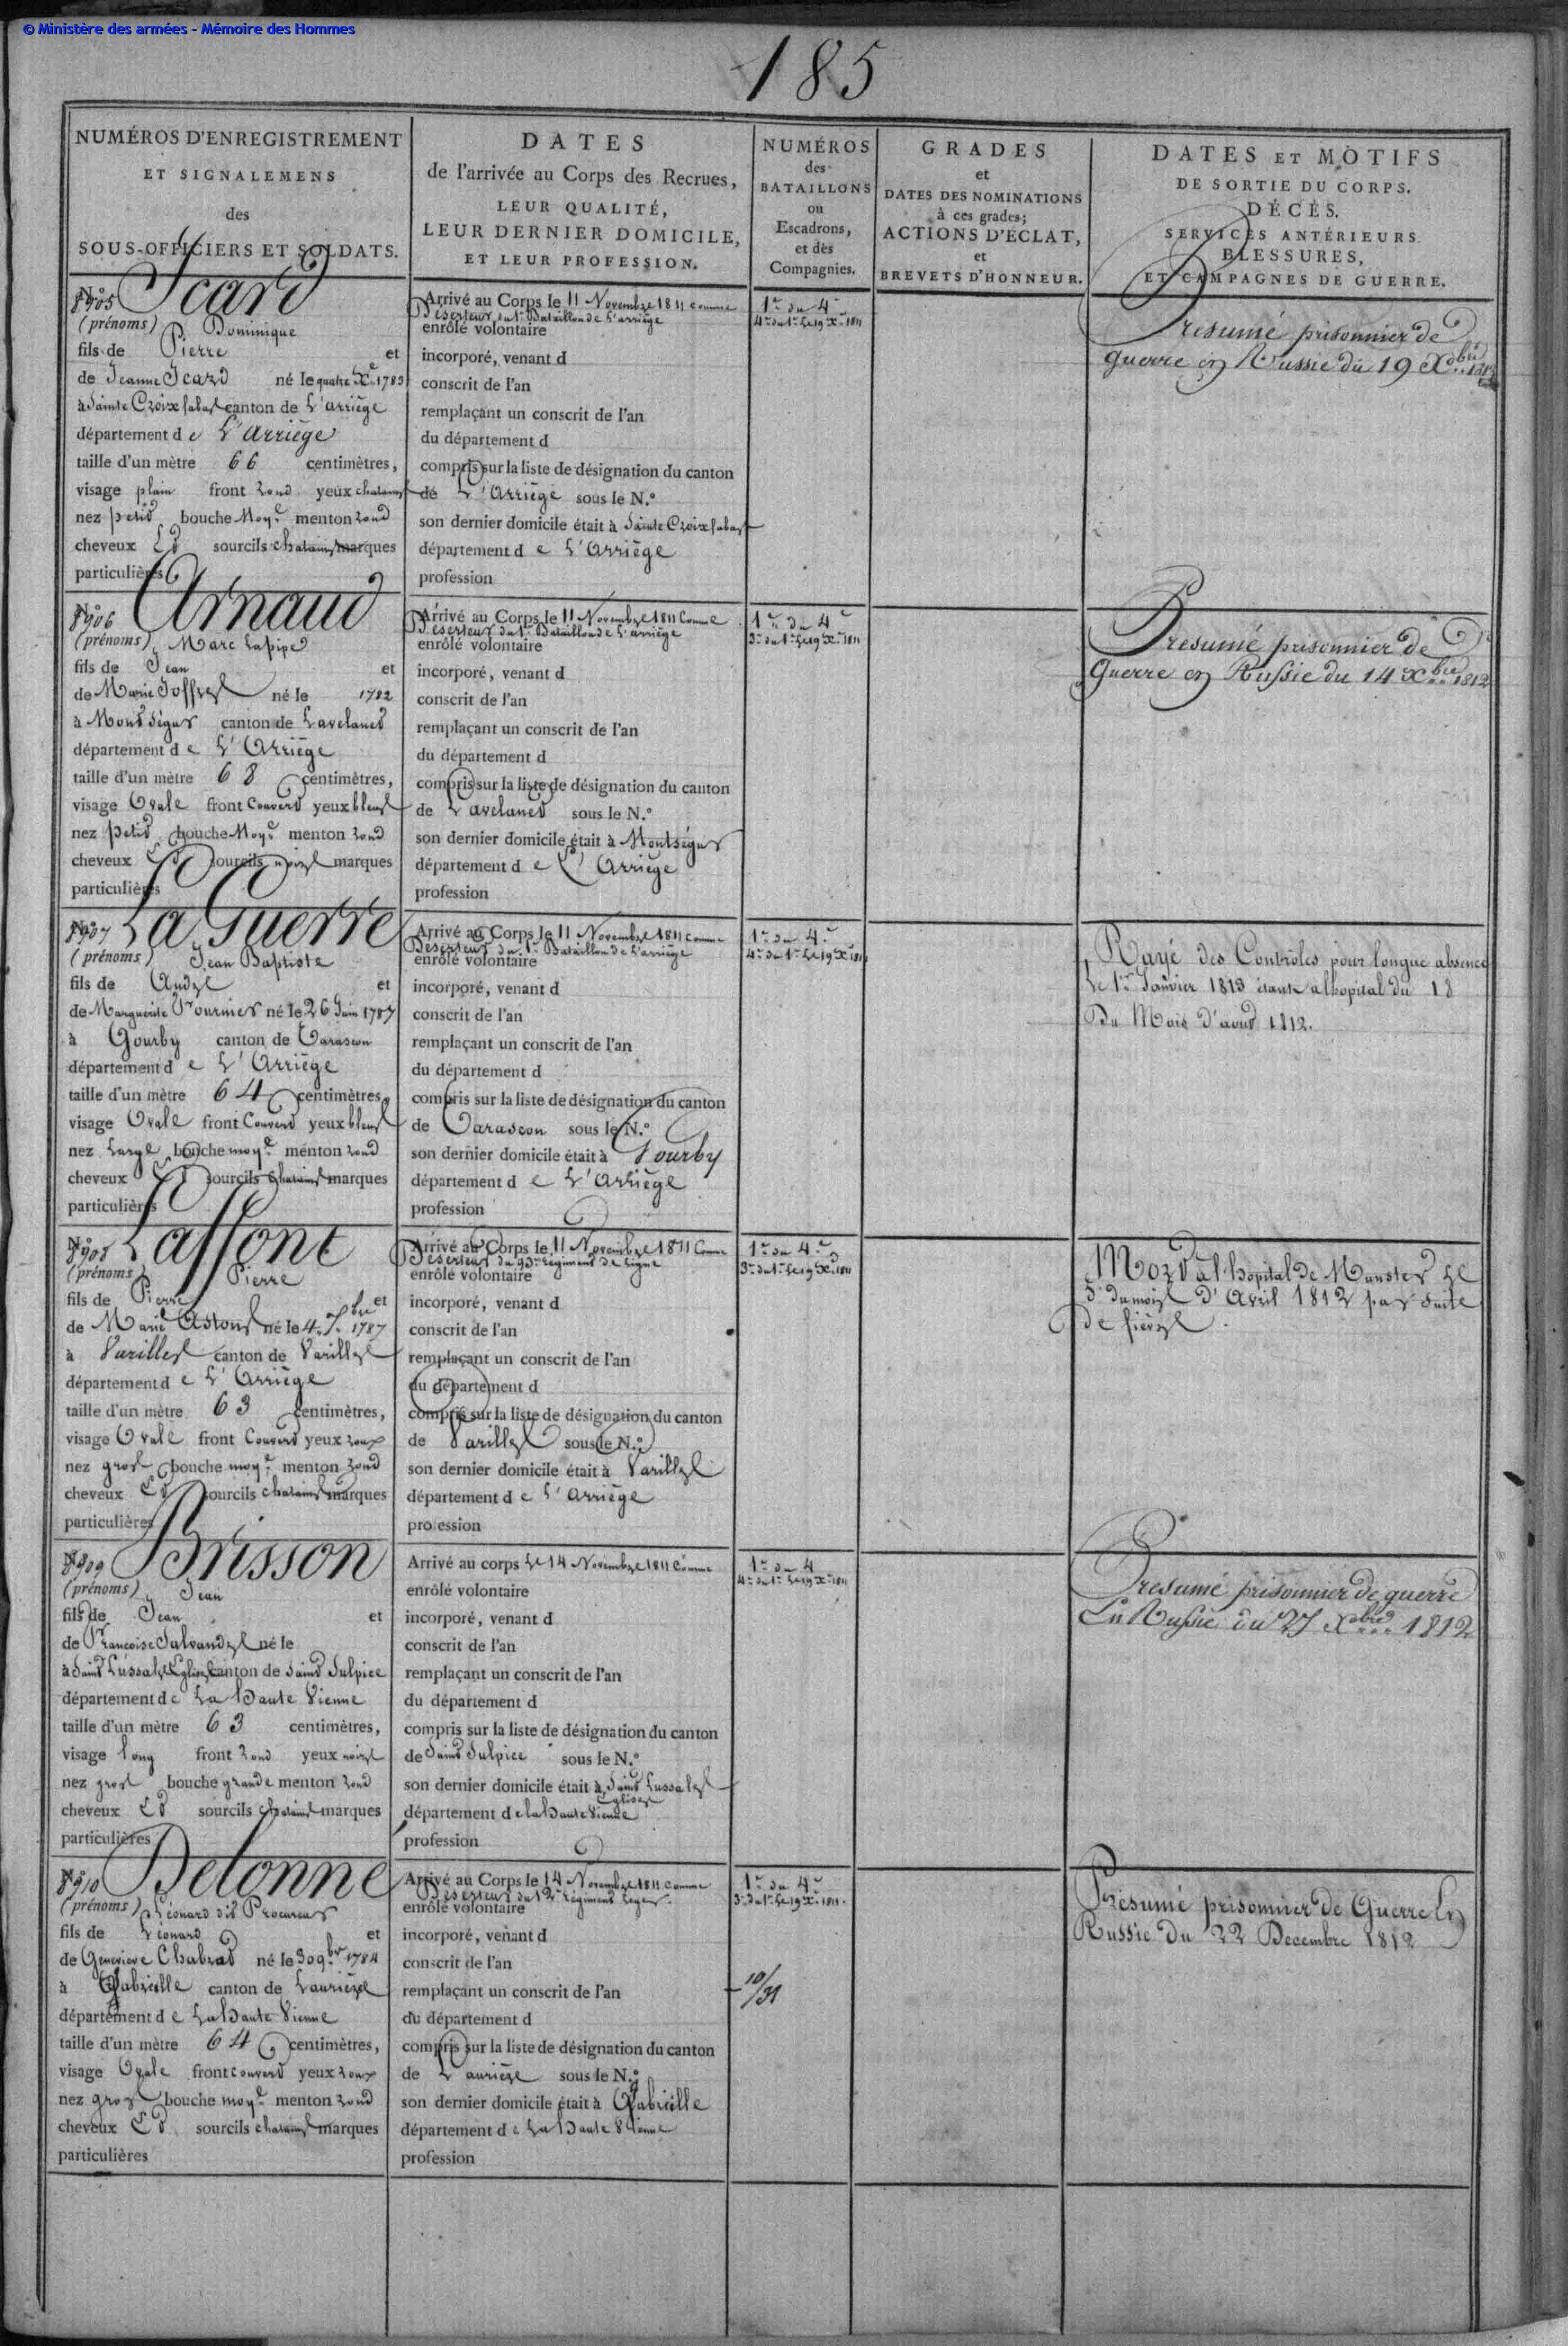 © Ministère des armées - Mémoire des Hommes
185
NUMÉROS D'ENREGISTREMENT
ET SIGNALEMENS
des
SOUS-OFFICIERS ET SOLDATS.
DATES
de l'arrivée au Corps des Recrues,
LEUR QUALITÉ,
LEUR DERNIER DOMICILE,
ET LEUR PROFESSION.
NUMÉROS
des
BATAILLONS
ou
Escadrons,
et des
Compagnies.
GRADES
et
DATES DES NOMINATIONS
à ces grades;
ACTIONS D'ÉCLAT,
et
BREVETS D'HONNEUR.
DATES ET MOTIFS
DE SORTIE DU CORPS.
DÉCÈS.
SERVICES ANTÉRIEURS.
BLESSURES,
ET CAMPAGNES DE GUERRE.
N.° 8905 Icard
(prénoms) Dominique
fils de Pierre et
de Jeanne Icard né le quatre Xbre 1783
à Sainte Croix canton de L'arriége
département de L'Arriége
taille d'un mètre 66 centimètres,
visage plain front rond yeux chatains
nez petit bouche Moyne menton rond
cheveux et sourcils chatains marques
particulières
Arrivé au Corps le 11 Novembre 1811 comme
Déserteur du 1er Bataillon de L'arriége
enrôlé volontaire
incorporé, venant d
conscrit de l'an
remplaçant un conscrit de l'an
du département d
compris sur la liste de désignation du canton
de L'Arriége sous le N.°
son dernier domicile était à Sainte Croix
département de L'Arriége
profession
1er du 4e
4e du 1er Le 19 Xbre 1811
Presumé prisonnier de
guerre en Russie du 19 Xbre 1812
N.° 8906 Arnaud
(prénoms) Marc Lapipe
fils de Jean et
de Marie Joffres né le 1782
à Montségur canton de Lavelanet
département de L'Arriége
taille d'un mètre 68 centimètres,
visage Ovale front Couvert yeux bleus
nez petit bouche Moyne menton rond
cheveux et sourcils noirs marques
particulières
Arrivé au Corps le 11 Novembre 1811 Comme
Déserteur du 1er Bataillon de L'arriége
enrôlé volontaire
incorporé, venant d
conscrit de l'an
remplaçant un conscrit de l'an
du département d
compris sur la liste de désignation du canton
de Lavelanet sous le N.°
son dernier domicile était à Montségur
département de L'Arriége
profession
1er du 4e
3e du 1er Le 19 Xbre 1811
Presumé prisonnier de
Guerre en Russie du 14 Xbre 1812
N.° 8907 La Guerre
(prénoms) Jean Baptiste
fils de André et
de Marguerite Fournier né le 26 Juin 1787
à Gourby canton de Tarascon
département de L'Arriége
taille d'un mètre 64 centimètres,
visage Ovale front Couvert yeux bleus
nez Large bouche moyne menton rond
cheveux et sourcils chatains marques
particulières
Arrivé au Corps le 11 Novembre 1811 comme
Déserteur du 1er Bataillon de L'arriége
enrôlé volontaire
incorporé, venant d
conscrit de l'an
remplaçant un conscrit de l'an
du département d
compris sur la liste de désignation du canton
de Tarascon sous le N.°
son dernier domicile était à Gourby
département de L'Arriége
profession
1er du 4e
4e du 1er Le 19 Xbre 1811
Rayé des Contrôles pour longue absence
Le 1er Janvier 1813 étant a lhopital du 18
Du Mois d'aout 1812.
N.° 8908 Laffont
(prénoms) Pierre
fils de Pierre et
de Marie Astous né le 4 7bre 1787
à Varilles canton de Varilles
département de L'Arriége
taille d'un mètre 63 centimètres,
visage Ovale front Couvert yeux roux
nez gros bouche moyne menton rond
cheveux et sourcils chatains marques
particulières
Arrivé au Corps le 11 Novembre 1811 Comme
Déserteur du 93e Régiment de Ligne
enrôlé volontaire
incorporé, venant d
conscrit de l'an
remplaçant un conscrit de l'an
du département d
compris sur la liste de désignation du canton
de Varilles sous le N.°
son dernier domicile était à Varilles
département de L'Arriége
profession
1er du 4e
3e du 1er Le 19 Xbre 1811
Mort à l'hopital de Munster Le
5 du mois d'Avril 1812 par suite
de fièvre.
N.° 8909 Brisson
(prénoms) Jean
fils de Jean et
de Francoise né le
à canton de Saint Sulpice
département de La haute Vienne
taille d'un mètre 63 centimètres,
visage long front rond yeux noirs
nez gros bouche grande menton rond
cheveux et sourcils chatains marques
particulières
Arrivé au corps Le 14 Novembre 1811 Comme
enrôlé volontaire
incorporé, venant d
conscrit de l'an
remplaçant un conscrit de l'an
du département d
compris sur la liste de désignation du canton
de Saint Sulpice sous le N.°
son dernier domicile était à
département de la haute Vienne
profession
1er du 4
4e du 1er Le 19 Xbre 1811
Presumé prisonnier de guerre
En Russie du 27 Xbre 1812
N.° 8910 Detonne
(prénoms) Léonard dit Procureur
fils de Léonard et
de Genevieve Chabrat né le 30 9bre 1784
à canton de Laurière
département de La haute Vienne
taille d'un mètre 64 centimètres,
visage Ovale front couvert yeux roux
nez gros bouche moyne menton rond
cheveux et sourcils chatains marques
particulières
Arrivé au Corps le 14 Novembre 1811 comme
Déserteur du 12e Régiment Leger.
enrôlé volontaire
incorporé, venant d
conscrit de l'an
remplaçant un conscrit de l'an
du département d
compris sur la liste de désignation du canton
de Laurière sous le N.°
son dernier domicile était à
département de La haute Vienne
profession
1er du 4e
3e du 1er Le 19 Xbre 1811.
10/31
Présumé prisonnier de Guerre En
Russie Du 22 Decembre 1812